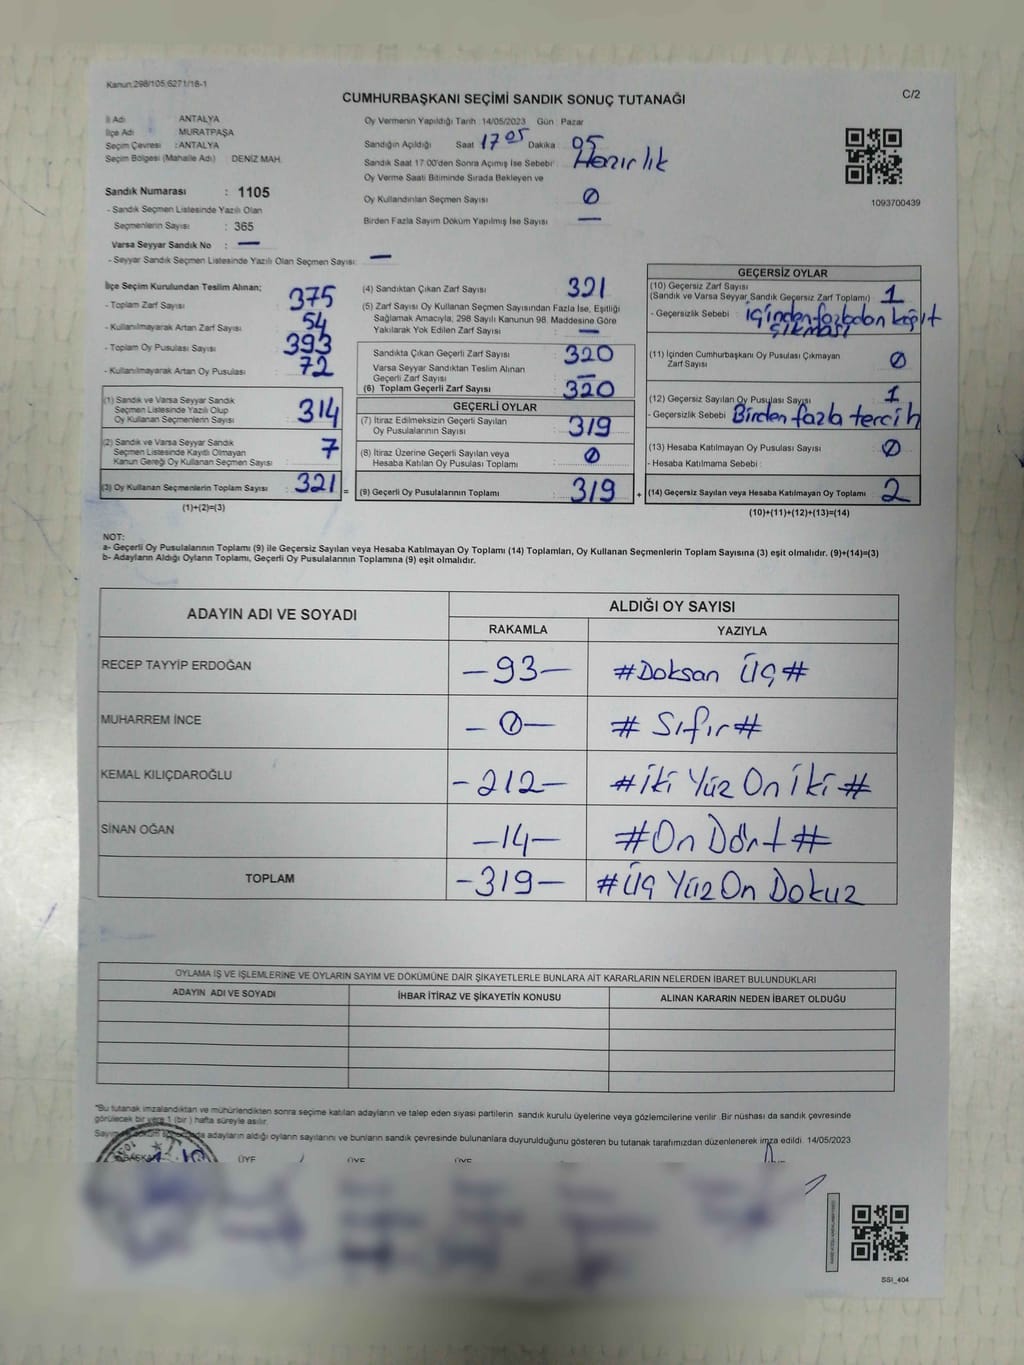 Kanun:298/105,6271/18-1
C/2
CUMHURBAŞKANI SEÇİMİ SANDIK SONUÇ TUTANAĞI
İl Adı ANTALYA
İlçe Adı MURATPAŞA
Seçim Çevresi : ANTALYA
Seçim Bölgesi (Mahalle Adı) DENİZ MAH.
Sandık Numarası : 1105
- Sandık Seçmen Listesinde Yazılı Olan
Seçmenlerin Sayısı : 365
Varsa Seyyar Sandık No : —
- Seyyar Sandık Seçmen Listesinde Yazılı Olan Seçmen Sayısı: —
Oy Vermenin Yapıldığı Tarih 14/05/2023 Gün Pazar
Sandığın Açıldığı Saat 17 05 Dakika 05
Sandık Saat 17.00'den Sonra Açılmış İse Sebebi: Hazırlık
Oy Verme Saati Bitiminde Sırada Bekleyen ve
Oy Kullandırılan Seçmen Sayısı 0
Birden Fazla Sayım Döküm Yapılmış İse Sayısı —
1093700439
İlçe Seçim Kurulundan Teslim Alınan;
- Toplam Zarf Sayısı 375
- Kullanılmayarak Artan Zarf Sayısı 54
- Toplam Oy Pusulası Sayısı 393
- Kullanılmayarak Artan Oy Pusulası 72
(1) Sandık ve Varsa Seyyar Sandık
Seçmen Listesinde Yazılı Olup
Oy Kullanan Seçmenlerin Sayısı 314
(2) Sandık ve Varsa Seyyar Sandık
Seçmen Listesinde Kayıtlı Olmayan
Kanun Gereği Oy Kullanan Seçmen Sayısı 7
(3) Oy Kullanan Seçmenlerin Toplam Sayısı : 321 =
(1)+(2)=(3)
(4) Sandıktan Çıkan Zarf Sayısı 321
(5) Zarf Sayısı Oy Kullanan Seçmen Sayısından Fazla İse, Eşitliği
Sağlamak Amacıyla, 298 Sayılı Kanunun 98. Maddesine Göre
Yakılarak Yok Edilen Zarf Sayısı : —
Sandıkta Çıkan Geçerli Zarf Sayısı 320
Varsa Seyyar Sandıktan Teslim Alınan
Geçerli Zarf Sayısı —
(6) Toplam Geçerli Zarf Sayısı 320
GEÇERLİ OYLAR
(7) İtiraz Edilmeksizin Geçerli Sayılan
Oy Pusulalarının Sayısı 319
(8) İtiraz Üzerine Geçerli Sayılan veya
Hesaba Katılan Oy Pusulası Toplamı 0
(9) Geçerli Oy Pusulalarının Toplamı 319 +
GEÇERSİZ OYLAR
(10) Geçersiz Zarf Sayısı
(Sandık ve Varsa Seyyar Sandık Geçersiz Zarf Toplamı) 1
- Geçersizlik Sebebi : içinden fazladan kağıt
çıkması
(11) İçinden Cumhurbaşkanı Oy Pusulası Çıkmayan
Zarf Sayısı 0
(12) Geçersiz Sayılan Oy Pusulası Sayısı 1
- Geçersizlik Sebebi Birden fazla tercih
(13) Hesaba Katılmayan Oy Pusulası Sayısı 0
- Hesaba Katılmama Sebebi :
(14) Geçersiz Sayılan veya Hesaba Katılmayan Oy Toplamı 2
(10)+(11)+(12)+(13)=(14)
NOT:
a- Geçerli Oy Pusulalarının Toplamı (9) ile Geçersiz Sayılan veya Hesaba Katılmayan Oy Toplamı (14) Toplamları, Oy Kullanan Seçmenlerin Toplam Sayısına (3) eşit olmalıdır. (9)+(14)=(3)
b- Adayların Aldığı Oyların Toplamı, Geçerli Oy Pusulalarının Toplamına (9) eşit olmalıdır.
ADAYIN ADI VE SOYADI ALDIĞI OY SAYISI
RAKAMLA YAZIYLA
RECEP TAYYİP ERDOĞAN —93— #Doksan Üç#
MUHARREM İNCE —0— #Sıfır#
KEMAL KILIÇDAROĞLU —212— #İki Yüz On İki#
SİNAN OĞAN —14— #On Dört#
TOPLAM —319— #Üç Yüz On Dokuz
OYLAMA İŞ VE İŞLEMLERİNE VE OYLARIN SAYIM VE DÖKÜMÜNE DAİR ŞİKAYETLERLE BUNLARA AİT KARARLARIN NELERDEN İBARET BULUNDUKLARI
ADAYIN ADI VE SOYADI İHBAR İTİRAZ VE ŞİKAYETİN KONUSU ALINAN KARARIN NEDEN İBARET OLDUĞU
"Bu tutanak imzalandıktan ve mühürlendikten sonra seçime katılan adayların ve talep eden siyasi partilerin sandık kurulu üyelerine veya gözlemcilerine verilir. Bir nüshası da sandık çevresinde
görülecek bir yere 1 (bir) hafta süreyle asılır.
adayların aldığı oyların sayılarını ve bunların sandık çevresinde bulunanlara duyurulduğunu gösteren bu tutanak tarafımızdan düzenlenerek imza edildi. 14/05/2023
BAŞKAN ÜYE ÜYE ÜYE
SSİ_404